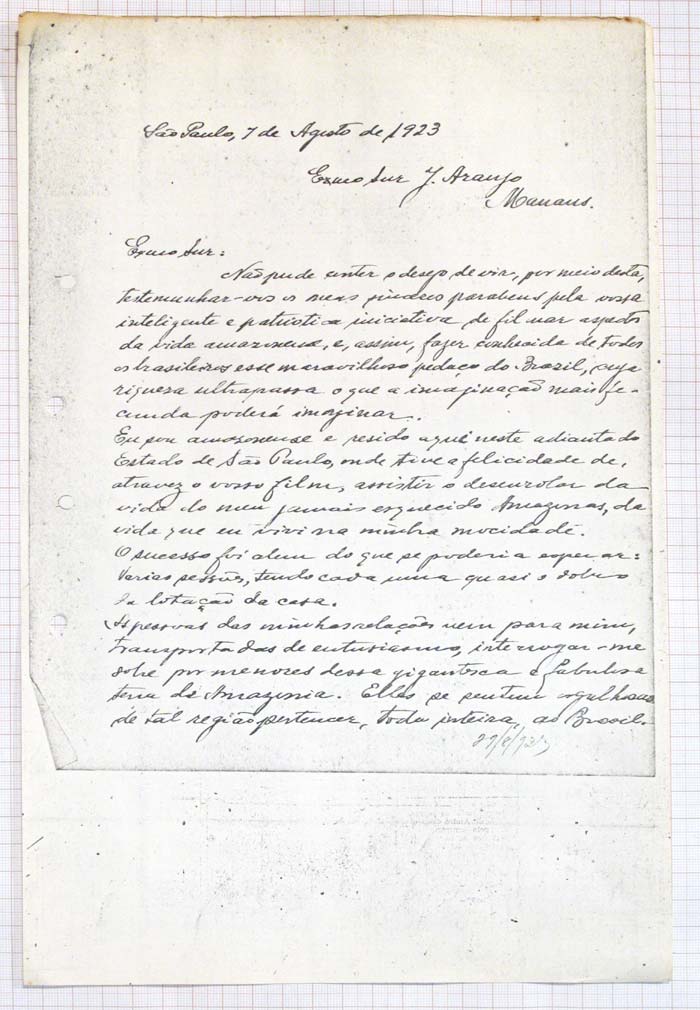 São Paulo, 7 de Agosto de 1923
Exmo Snr J. Araujo
Manaus.
Exmo Snr:
Não pude conter o desejo de vir, por meio desta,
testemunhar-vos os meus sinceros parabens pela vossa
inteligente e patriotica iniciativa de filmar aspectos
da vida amazonense, e, assim, fazer conhecida de todos
os brasileiros esse maravilhoso pedaço do Brazil, cuja
riqueza ultrapassa o que a imaginação mais fe-
cunda poderá imaginar.
Eu sou amazonense e resido aqui neste adiantado
Estado de São Paulo, onde tive a felicidade de,
atravez o vosso film, assistir o desenrolar da
vida do meu jamais esquecido Amazonas, da
vida que eu vivi na minha mocidade.
O sucesso foi alem do que se poderia esperar:
Varias sessões, tendo cada uma quasi o dobro
da lotação da casa.
As pessoas das minhas relações vem para mim,
transportadas de entusiasmo, interrogar-me
sobre pormenores dessa gigantesca e fabulosa
terra da Amazonia. Elles se sentem orgulhosos
de tal região pertencer, toda inteira, ao Brasil.